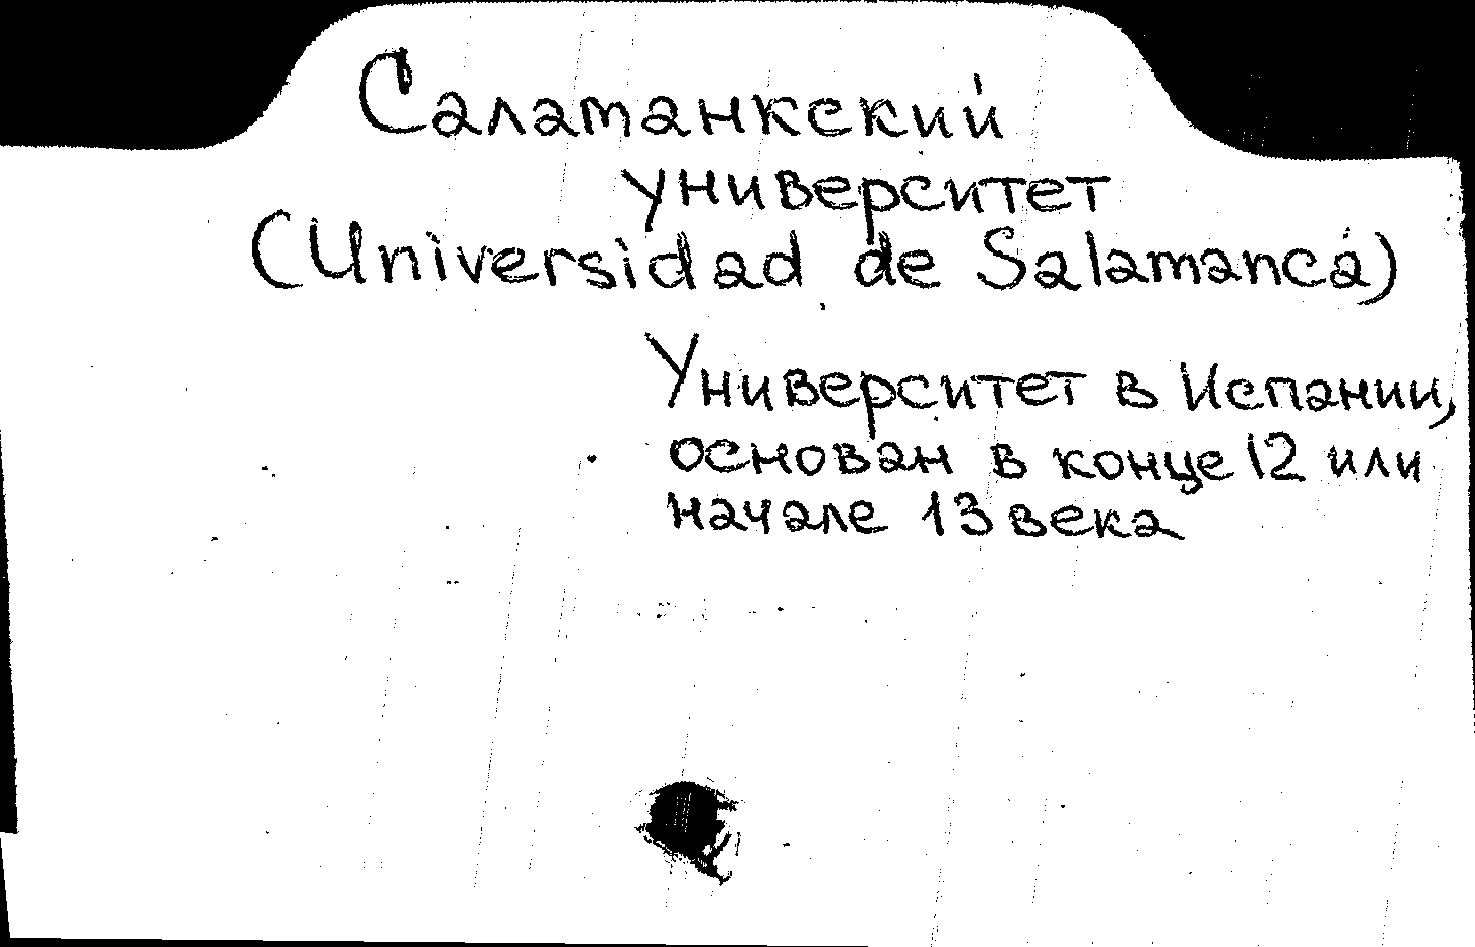 Саламанкский
университет
(Universidad de Salamanca)
Университет в Испании,
основан в конце 12 или
начале 13 века